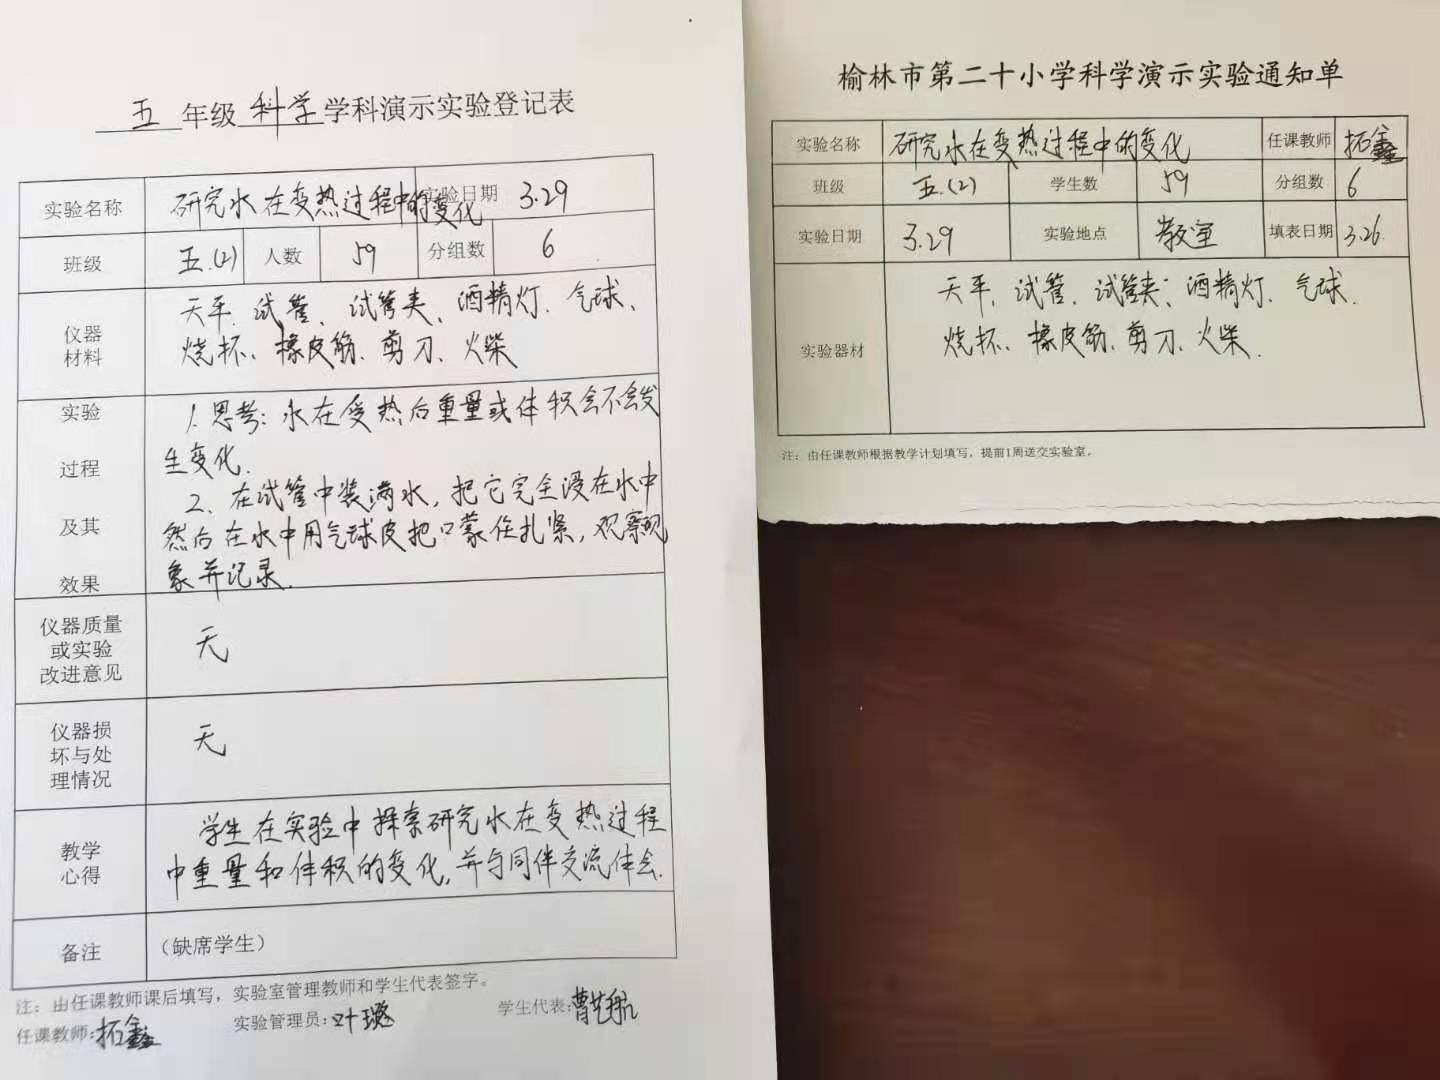 五年级科学学科演示实验登记表
实验名称 研究水在变热过程中的变化 实验日期 3.29
班级 五.(2) 人数 59 分组数 6
仪器材料 天平、试管、试管夹、酒精灯、气球、
烧杯、橡皮筋、剪刀、火柴
实验过程及其效果 1.思考:水在受热后重量或体积会不会发
生变化.
2、在试管中装满水,把它完全浸在水中
然后在水中用气球皮把口蒙住扎紧,观察现
象并记录.
仪器质量或实验改进意见 无
仪器损坏与处理情况 无
教学心得 学生在实验中探索研究水在变热过程
中重量和体积的变化,并与同伴交流体会.
备注 (缺席学生)
注:由任课教师课后填写,实验室管理教师和学生代表签字。
任课教师:拓鑫 实验管理员:叶璐 学生代表:曹艺航
榆林市第二十小学科学演示实验通知单
实验名称 研究水在变热过程中的变化 任课教师 拓鑫
班级 五.(2) 学生数 59 分组数 6
实验日期 3.29 实验地点 教室 填表日期 3.26.
实验器材 天平、试管、试管夹、酒精灯、气球、
烧杯、橡皮筋、剪刀、火柴.
注:由任课教师根据教学计划填写,提前1周送交实验室。